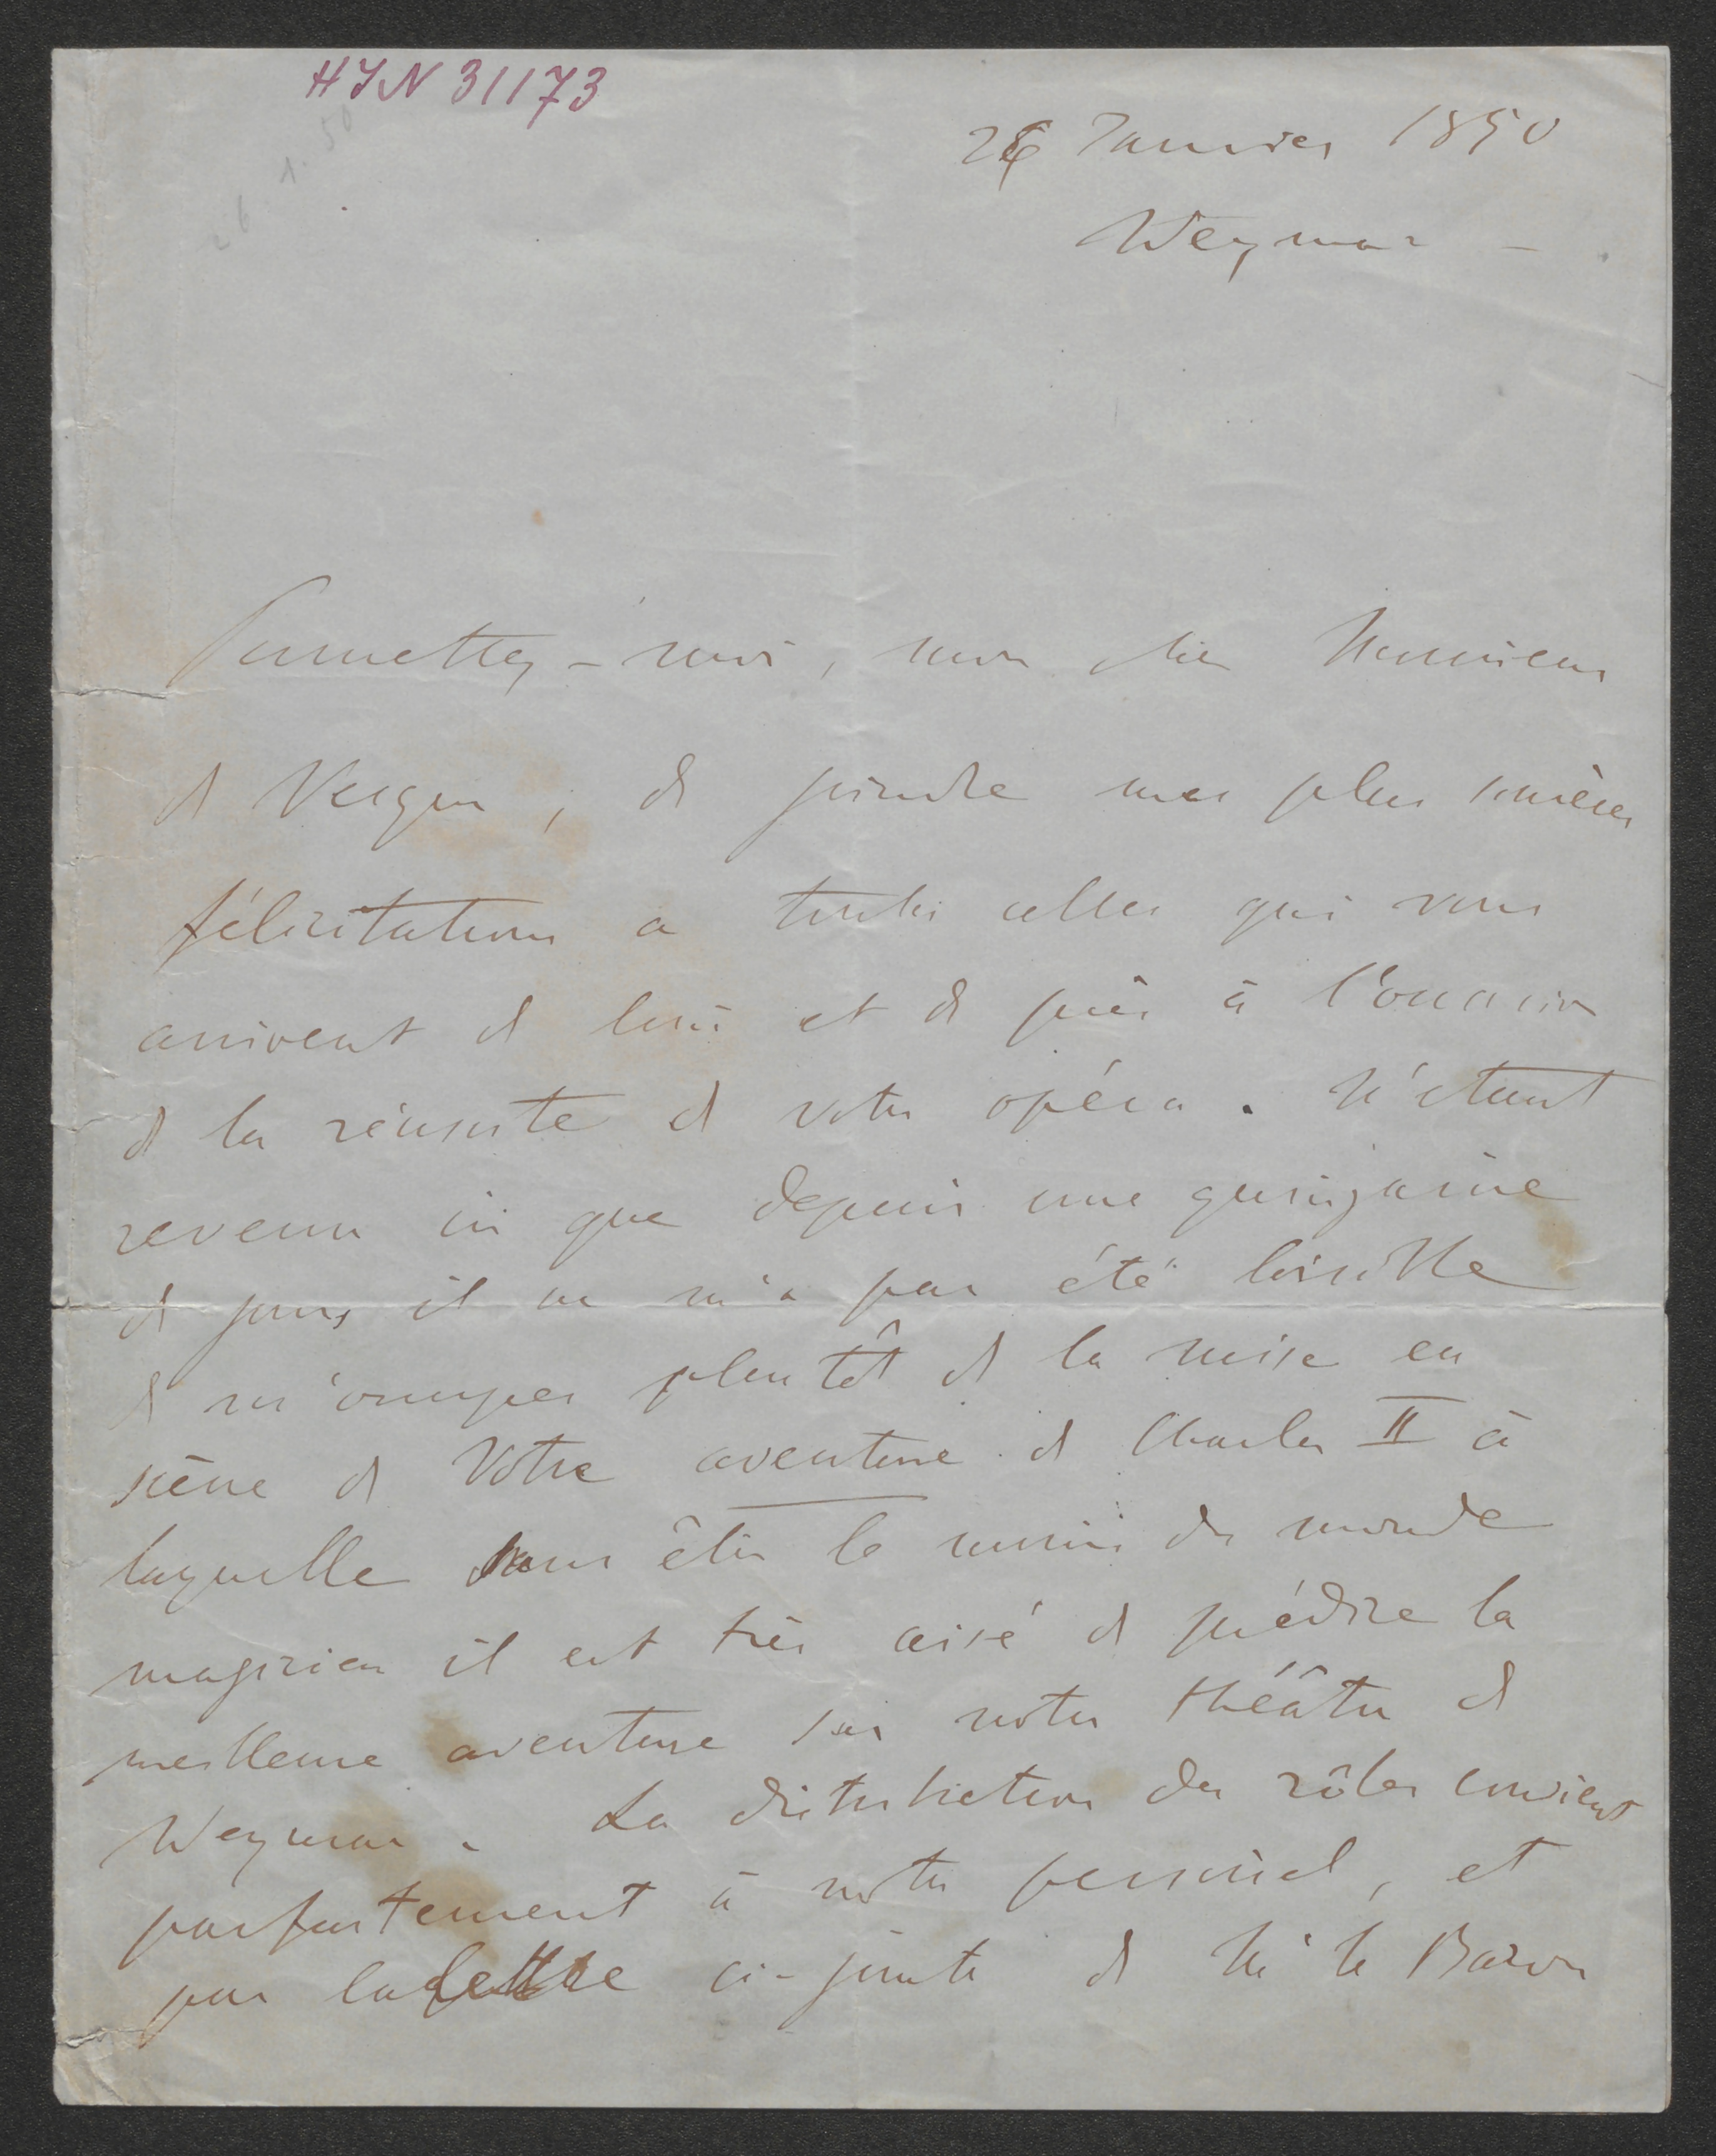 HIN 31173
26. 1. 50
26 Janvier 1850
Weymar –
Permettez-moi, mon cher Monsieur
de Vesque, de joindre mes plus sincères
félicitations a toutes celles qui vous
arrivent de loin et de près à l'occasion
de la réussite de votre opéra. N'étant
revenu ici que depuis une quinzaine
de jours il ne m'a pas été loisible
de m'occuper plutôt de la mise en
scène de Votre aventure de Charles II à
laquelle sans être le moins du monde
magicien il est très aisé de prédire la
meilleure aventure sur notre théâtre de
Weymar. La distribution des rôles convient
parfaitement à notre personnel, et
par la lettre ci-jointe de Mr le Baron